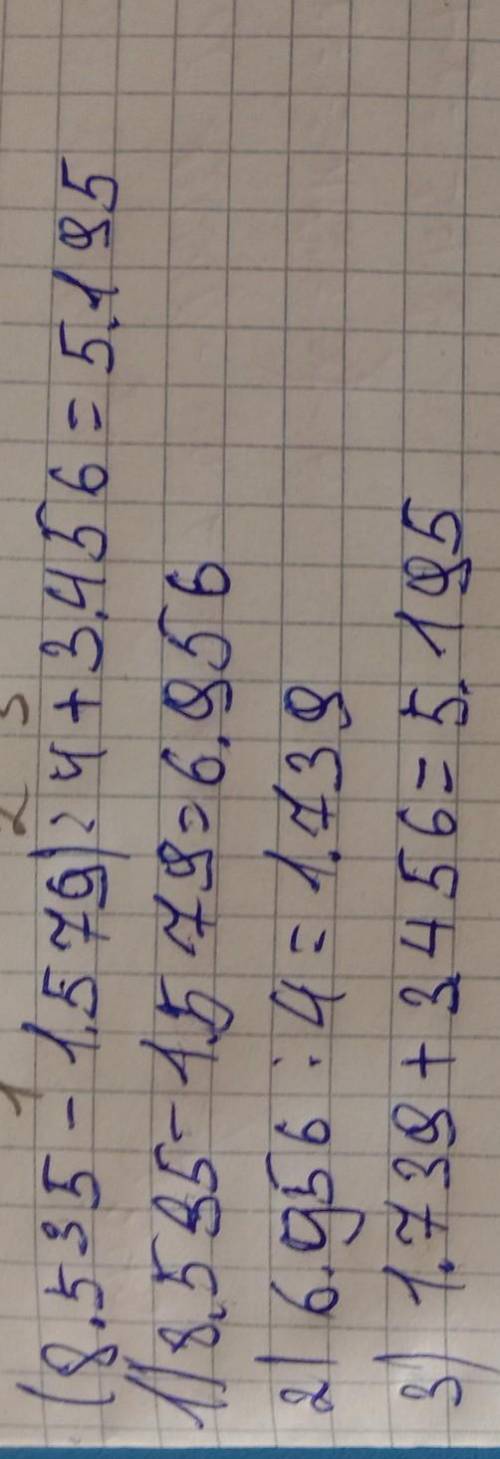 1 2 3
(8.535 - 1.579) : 4 + 3.456 = 5.195
1) 8.535 - 1.579 = 6.956
2) 6.956 : 4 = 1.739
3) 1.739 + 3.456 = 5.195